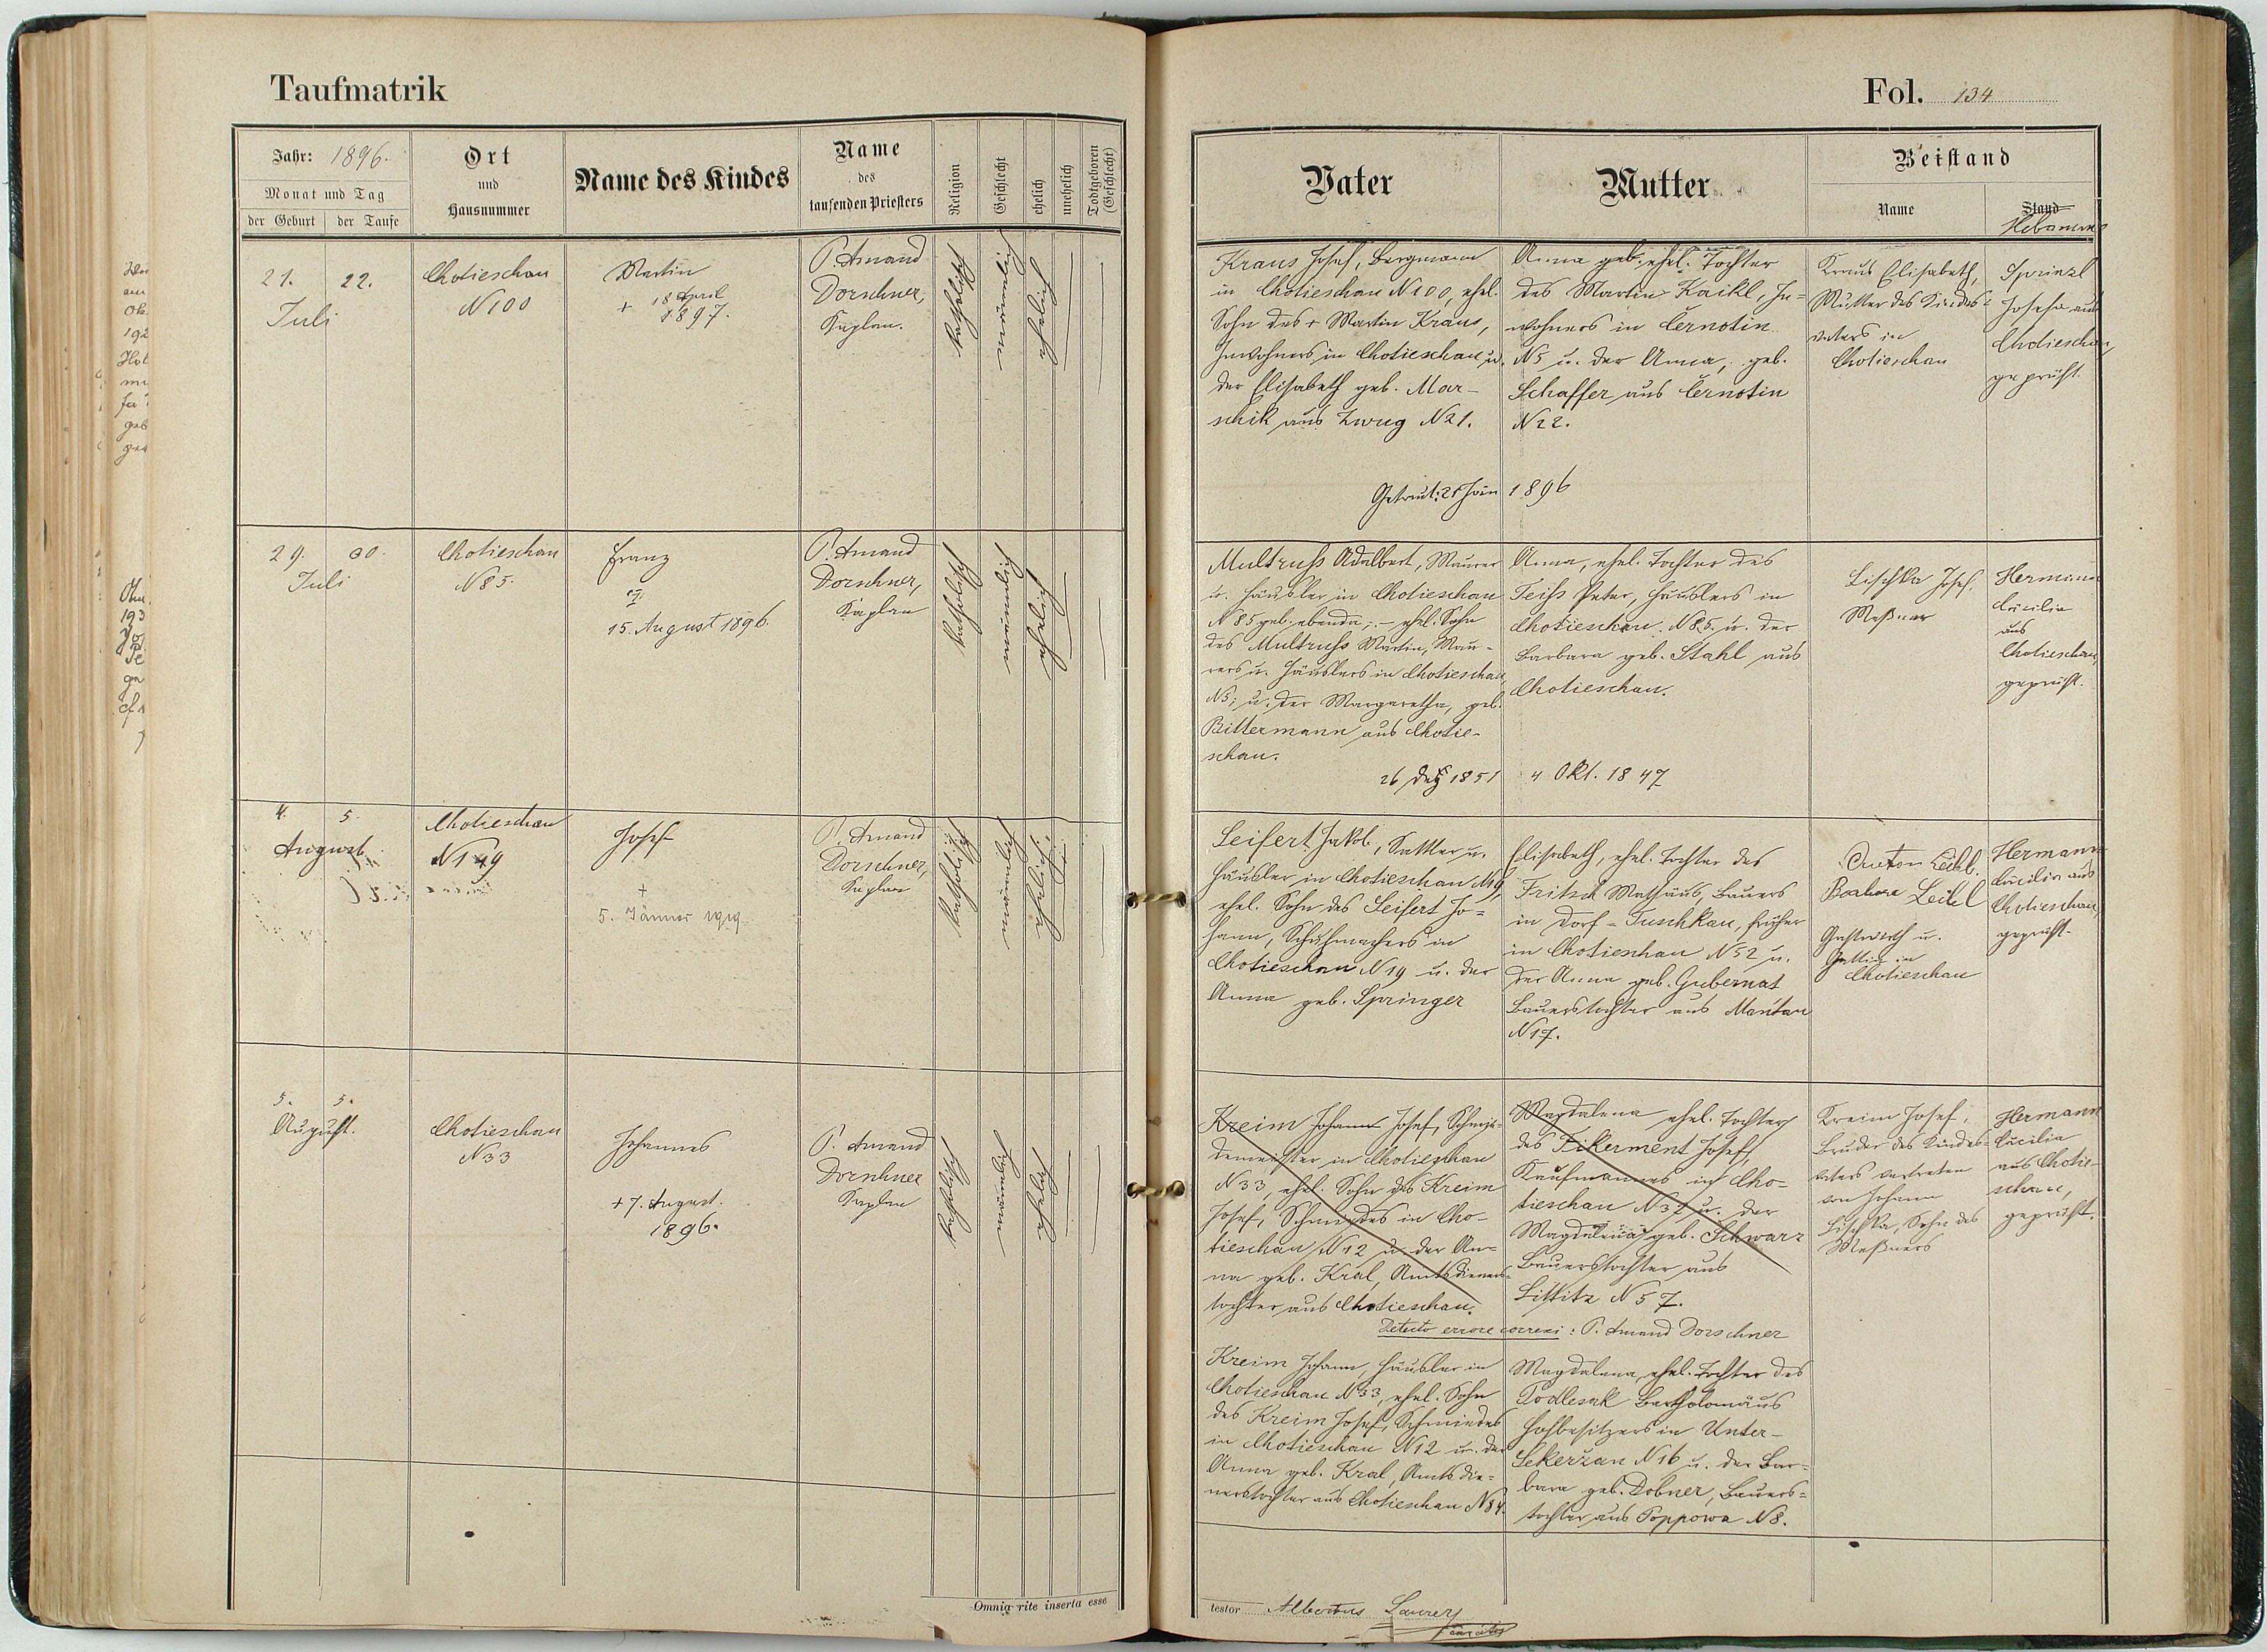 Taufmatrik
Jahr: 1896.
Monat und Tag
der Geburt
der Taufe
Ort
und
Hausnummer
Name des Kindes
Name
des
taufenden Priesters
Religion
Geschlecht
ehelich
unehelich
Todtgeboren
(Geschlecht)
21. 22.
Juli
Chotieschau
N 100
Martin
+ 18 April
1897.
P. Amand
Dorschner,
Kaplan.
katholisch
männlich
ehelich
29. 30.
Juli
Chotieschau
N 85.
Franz
15. August 1896.
P. Amand
Dorschner,
Kaplan
katholisch
männlich
ehelich
4. 5.
August
Chotieschau
Josef
+
5. Jänner 1919
P. Amand
Dorschner,
Kaplan
katholisch
männlich
ehelich
5. 5.
August.
Chotieschau
N 33
Johannes
+ 7. August.
1896.
P. Amand
Dorschner
Kaplan
katholisch
männlich
ehelich
Omnia rite inserta esse
Fol. 134
Vater
Mutter
Beistand
Name
Stand
Hebamme
Kraus Josef, Bergmann
in Chotieschau N 100, ehel.
Sohn des + Martin Kraus,
Inwohners in Chotieschau u.
der Elisabeth geb. Mar-
schik aus Zwug N 21.
Anna geb. ehel. Tochter
des Martin Kaikl, In=
wohners in Černotin
N 5 u. der Anna, geb.
Schaffer aus Černotin
N 22.
Kraus Elisabeth,
Mutter des Kindes=
vaters in
Chotieschau
Sprinzl
Josefa aus
Chotieschau,
geprüft.
Getraut: 21 Jän 1896
Multruß Adalbert, Maurer
u. Häusler in Chotieschau
N 85 geb. ebenda; - ehel. Sohn
des Multruß Martin, Mau-
rers u. Häuslers in Chotieschau
N 5; u. der Margaretha, geb.
Bittermann aus Chotie-
schau.
26 Dez 1851
Anna, ehel. Tochter des
Teiß Peter, Häuslers in
Chotieschau N 85 u. der
Barbara geb. Stahl aus
Chotieschau.
4 Okt. 1847
Lischka Josef,
Meßner
Hermann
Cäcilia
aus
Chotieschau,
geprüft.
Seifert Jakob, Sattler u.
Häusler in Chotieschau
ehel. Sohn des Seifert Jo=
hann, Schuhmachers in
Chotieschau N 19 u. der
Anna geb. Springer
Elisabeth, ehel. Tochter des
Fritsch Mathäus, Bauers
in Dorf-Tuschkau, früher
in Chotieschau N 52 u.
der Anna geb. Gubernat
Bauerstochter aus Mantau
N 17.
Anton
Barbara
Gastwirth u.
Gattin in
Chotieschau
Hermann
Cäcilia aus
Chotieschau,
geprüft.
Kreim Johann Josef, Schmie=
demeister in Chotieschau
N 33, ehel. Sohn des Kreim
Josef, Schmiedes in Cho-
tieschau N 12 u. der An=
na geb. Kral, Amtsdieners=
tochter aus Chotieschau.
Magdalena ehel. Tochter
des Fikerment Josef,
Kaufmannes in Cho-
tieschau N 32 u. der
Magdalena geb. Schwarz
Bauerstochter aus
Littitz N 57.
Kreim Josef,
Bruder des Kindes=
vaters vertreten
von Johann
Lischka, Sohn des
Meßners
Hermann
Cäcilia
aus Chotie-
schau,
geprüft.
Detecto errore correxi: P. Amand Dorschner
Kreim Johann, Häusler in
Chotieschau N 33, ehel. Sohn
des Kreim Josef, Schmiedes
in Chotieschau N 12 u. der
Anna geb. Kral, Amtsdie=
nerstochter aus Chotieschau N 84.
Magdalena, ehel. Tochter des
Podlesak Bartholomäus
Hofbesitzers in Unter-
Sekeržan N 16 u. der Bar=
bara geb. Dobner, Bauers=
tochter aus Poppowa N 8.
testor Albertus